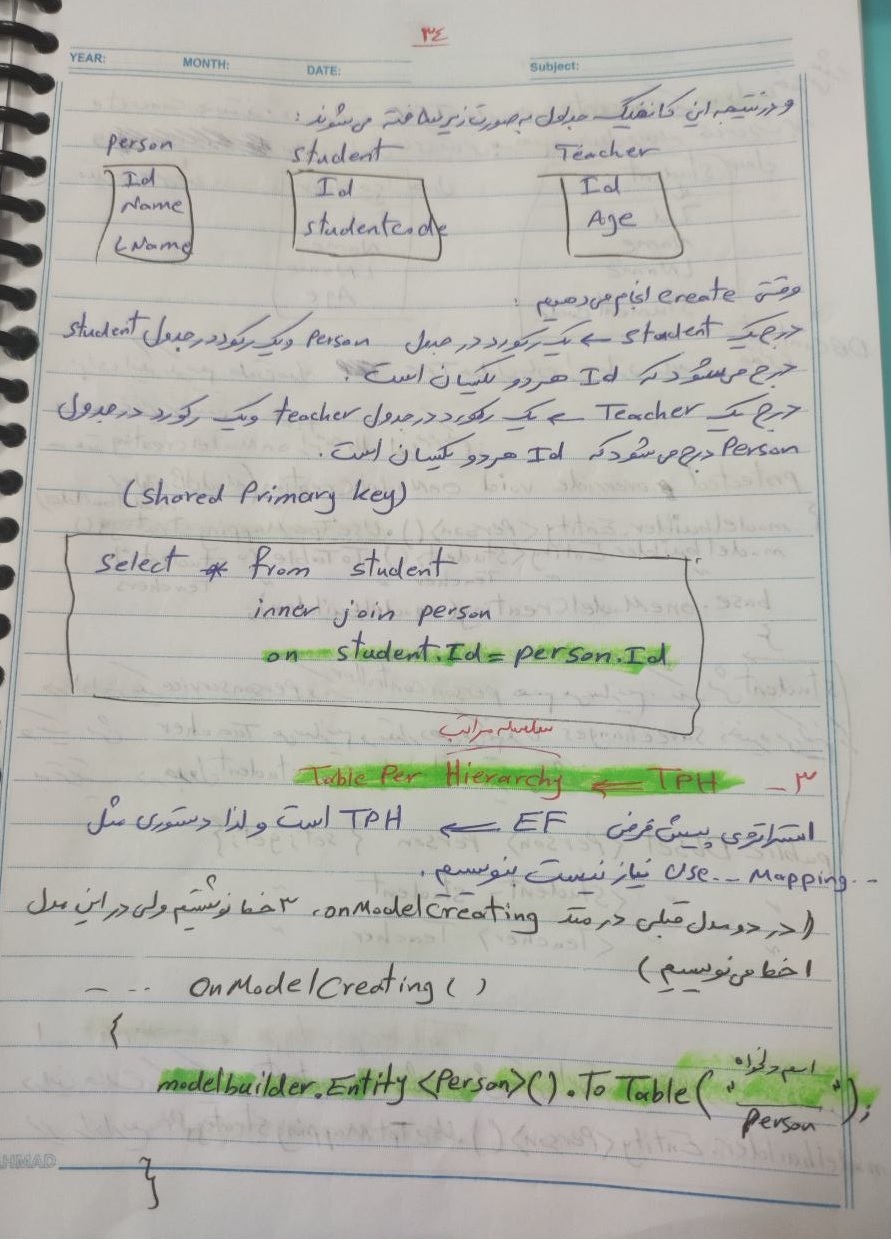 ۳۴
YEAR: MONTH: DATE: Subject:
و در نتیجه این کانفیگ جداول به صورت زیر ساخته می شوند :
person student Teacher
Id Id Id
Name studentcode Age
LName
وقتی create انجام می دهیم :
درج یک student ← یک رکورد در جدول Person و یک رکورد در جدول student
درج می شود که Id هر دو یکسان است .
درج یک Teacher ← یک رکورد در جدول teacher و یک رکورد در جدول
Person درج می شود که Id هر دو یکسان است .
(shared Primary key)
Select * from student
inner join person
on student.Id = person.Id
سلسله مراتب
۳ - TPH ← Table Per Hierarchy
استراتژی پیش فرض EF ← TPH است و لذا دستوری مثل
Use -- Mapping -- نیاز نیست بنویسیم .
(در دو مدل قبلی در متد onModelCreating، ۳ خط نوشتیم ولی در این مدل
۱ خط می نویسیم )
- -- OnModelCreating ( )
{
اسم دلخواه
modelbuilder.Entity <Person>().To Table( " " );
Person
}